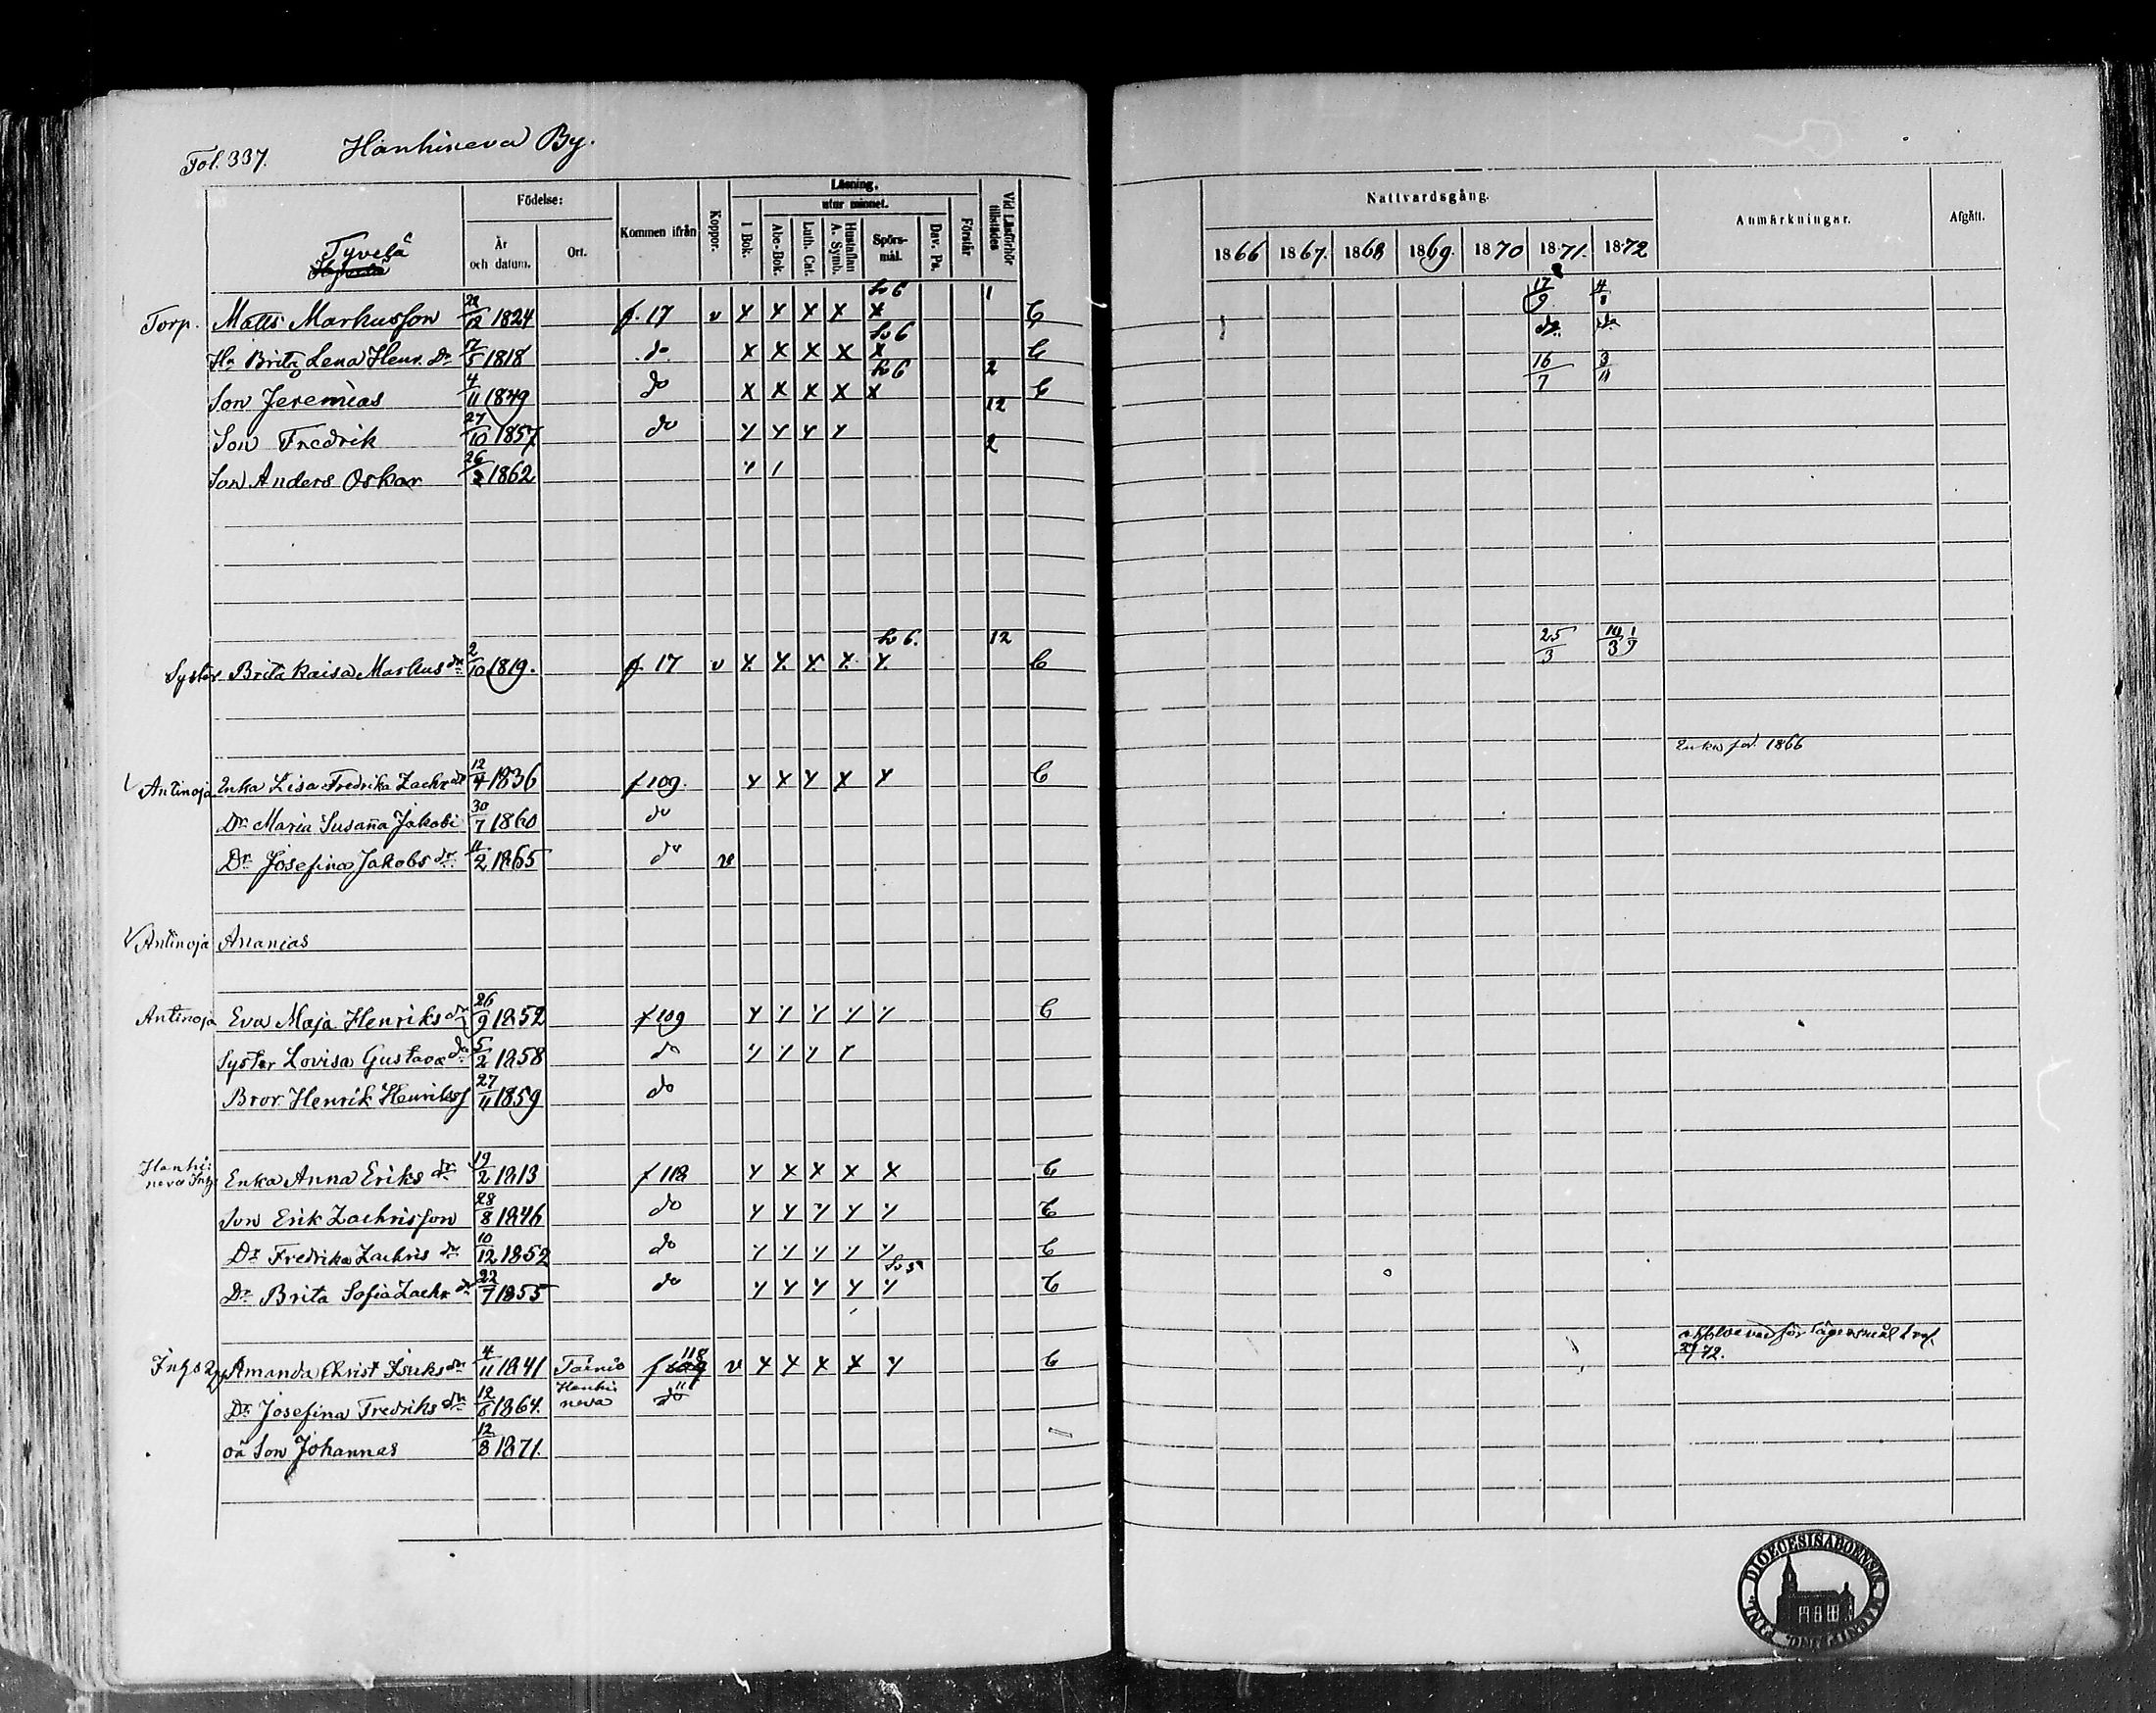 Fol. 337. Hanhineva By.
Födelse: Kommen ifrån Koppor. Läsning. Vid Läsförhör tillstädes Nattvardsgång. Anmärkningar. Afgått.
År och datum. Ort. I Bok. utur minnet. Förstår
Abc-Bok. Luth. Cat. Hustaflan A. Symb. Spörsmål. Dav. Ps.
1866 1867. 1868 1869. 1870 1871. 1872
Tyvelä
Torp. Matts Markusson 12 1824 f. 17 v x x x x x 1 C 17/9
Hu Brita Lena Henr. dr 5 1818 do x x x x x C do do
Son Jeremias 4/11 1849 do x x x x x 2 C 16/7 3/11
Son Fredrik 27/10 1857 do 12
Son Anders Oskar 26 1862 2
Syster Brita Kaisa Markus dr 2/10 1819. f. 17 v x x x x x 12 C 25/3
Enka sed. 1866
Antinoja Enka Lisa Fredrika Zachr dr 12/4 1836 f 109. C
Dr Maria Susaña Jakobi 30/7 1860 do
Dr Josefina Jakobs dr 11/2 1865 do v
Antinoja Ananias
Antinoja Eva Maja Henriks dr 26/9 1852 f 109 C
Syster Lovisa Gustava dr 5/2 1858 do
Bror Henrik Henrikss 27/11 1859 do
Hanhineva Enka Anna Eriks dr 19/2 1813 f 118 C
Son Erik Zachrisson 28/8 1846 do C
Dr Fredrika Zachris dr 10/12 1852 do C
Dr Brita Sofia Zachr dr 22/7 1855 do C
Amanda Christ Eriks dr 4/11 1841 Tainio f 118 v C
Dr Josefina Fredriks dr 12/6 1864. Hanhineva do
oä Son Johannes 12/8 1871.
DIOECESIS ABOENSIS